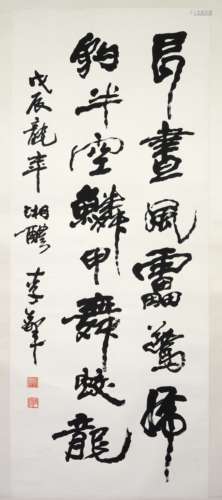 白晝風雷驚虎
豹半空鱗甲舞蛟龍
戊辰龍年湘醴李鐸